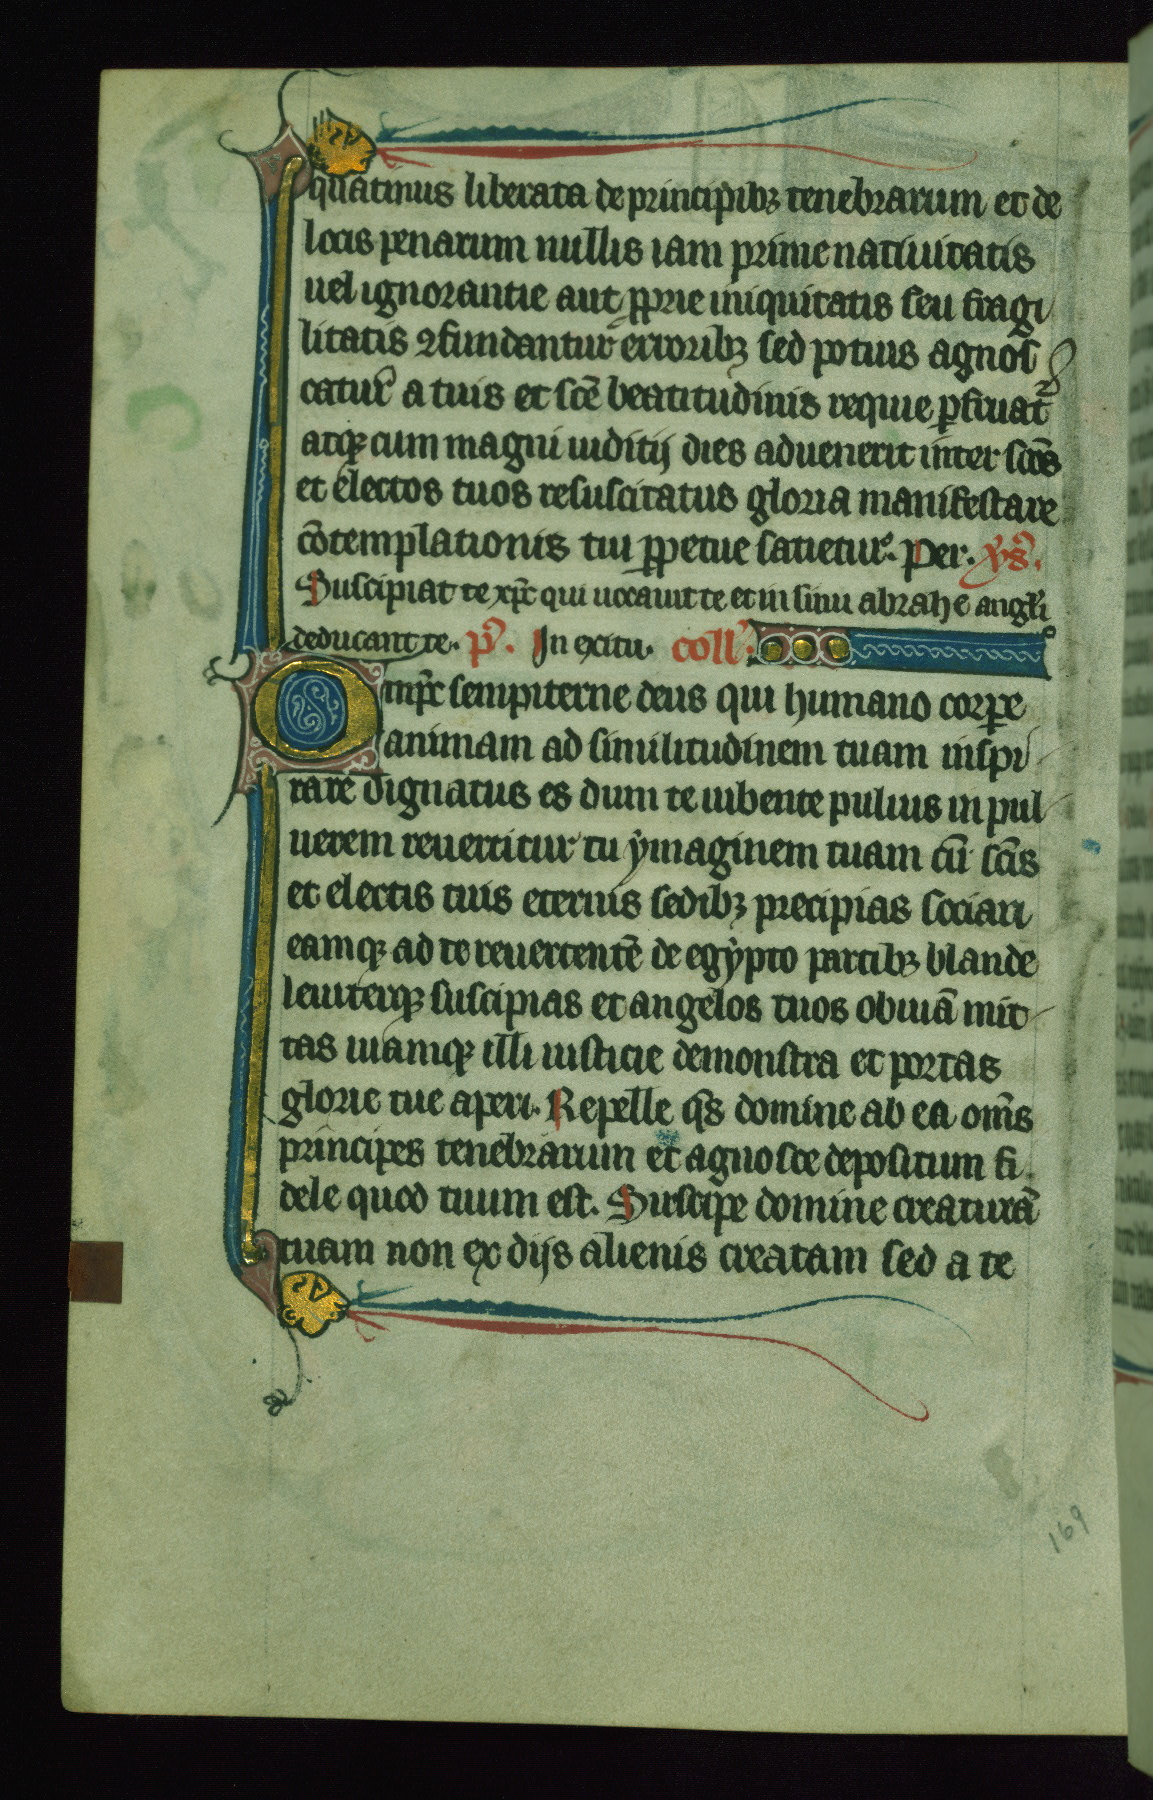 quatinus liberata de principibꝫ tenebrarum et de
locis penarum nullis iam prime natiuitatis
uel ignorantie aut ꝓprie iniquitatis seu fragi
litatis ꝯfundantur erroribꝫ sed potius agnos
catur a tuis et sc̄e beatitudinis requie ꝑfruat᷑
atqꝫ cum magni iuditij dies aduenerit inter sc̄os
et electos tuos resuscitatus gloria manifestare
cōtemplationis tui ꝑpetue satietur. Per. ẏs̄.
Suscipiat te xp̄c qui uocauit te et in sinu abrahe angl̄i
deducant te. p̄s. In exitu. coll'.
Omp̄c sempiterne deus qui humano corꝑe
animam ad similitudinem tuam inspi
rare dignatus es dum te iubente puluis in pul
uerem reuertitur tu ẏmaginem tuam cū sc̄is
et electis tuis eternis sedibꝫ precipias sociari
eamqꝫ ad te reuertentē de egẏpto partibꝫ blande
leuiterqꝫ suscipias et angelos tuos obuiā mit
tas uiamqꝫ illi iusticie demonstra et portas
glorie tue aperi. Repelle q̄s domine ab ea om̄s
principes tenebrarum et agnosce depositum fi
dele quod tuum est. Suscipe domine creaturā
tuam non ex dijs alienis creatam sed a te
169